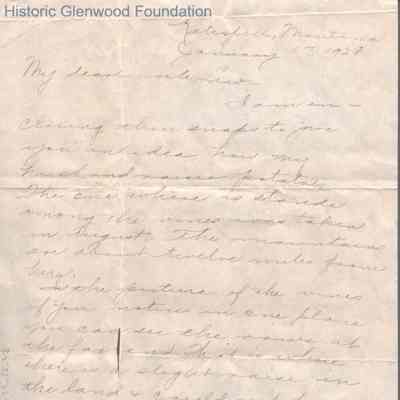 Historic Glenwood Foundation
Kalispell, Montana
January 13, 1928
My dear
I am en-
closing these snaps to give
you an idea how my
husband raises potatoes.
The one where is stands
among the vines was taken
in August. The mountains
are about twelve miles from
here.
In the picture of the vines
if you notice in one place
you can see the rows at
the far end that is where
there is a slight raise in
the land &